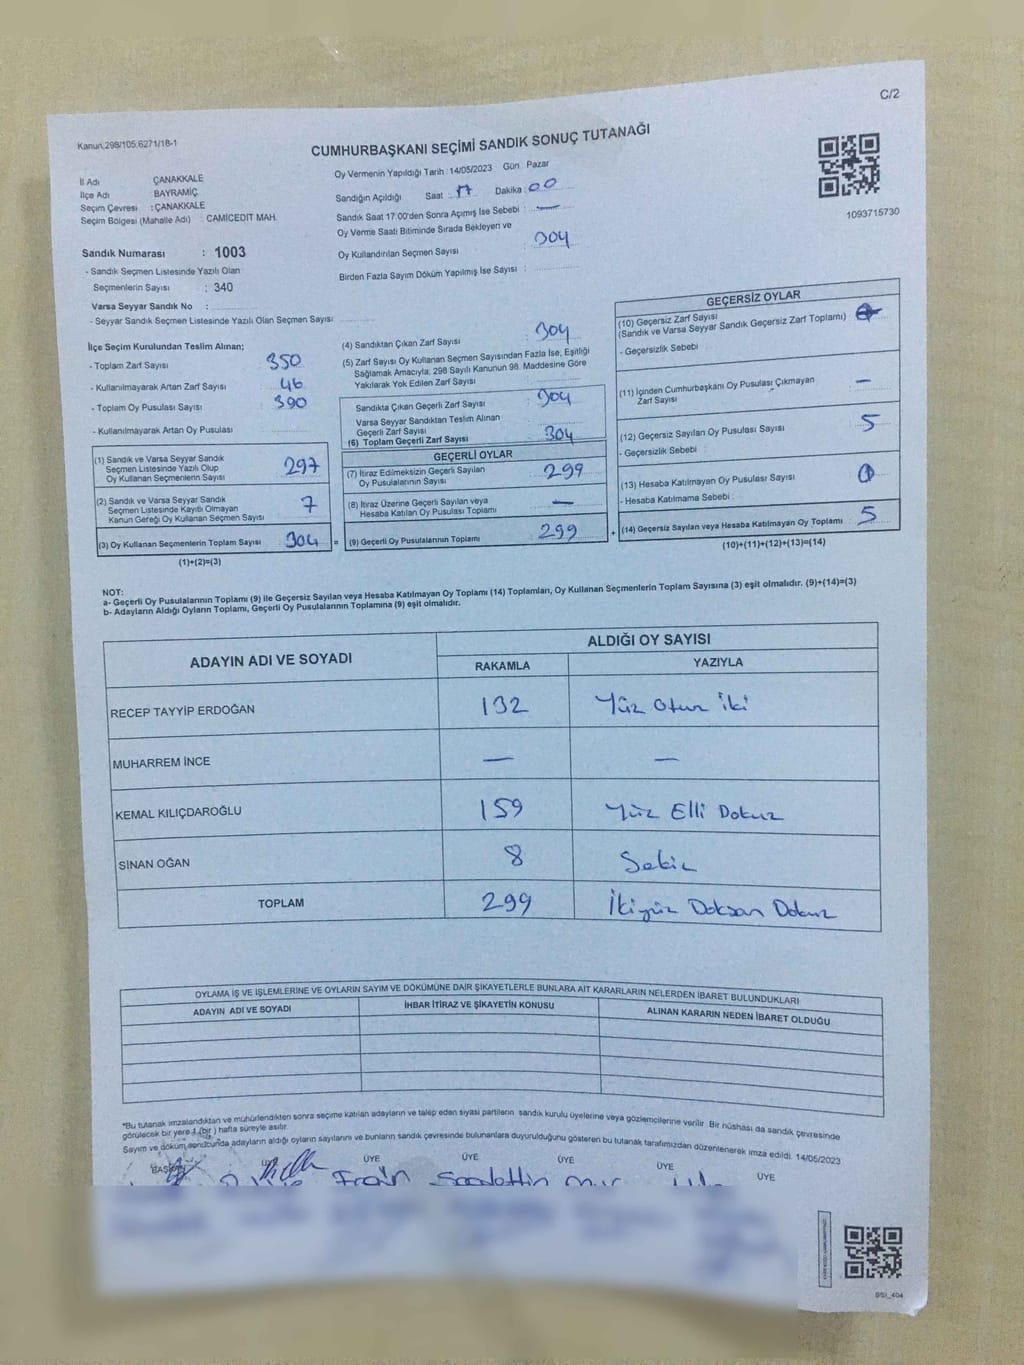 C/2
Kanun.298/105;6271/18-1
CUMHURBAŞKANI SEÇİMİ SANDIK SONUÇ TUTANAĞI
İl Adı ÇANAKKALE
İlçe Adı BAYRAMİÇ
Seçim Çevresi : ÇANAKKALE
Seçim Bölgesi (Mahalle Adı) : CAMİCEDİT MAH.
Sandık Numarası : 1003
- Sandık Seçmen Listesinde Yazılı Olan
Seçmenlerin Sayısı : 340
Varsa Seyyar Sandık No :
- Seyyar Sandık Seçmen Listesinde Yazılı Olan Seçmen Sayısı
Oy Vermenin Yapıldığı Tarih : 14/05/2023 Gün : Pazar
Sandığın Açıldığı Saat : 17 Dakika : 00
Sandık Saat 17:00'den Sonra Açımış İse Sebebi : —
Oy Verme Saati Bitiminde Sırada Bekleyen ve
Oy Kullandırılan Seçmen Sayısı : 304
Birden Fazla Sayım Döküm Yapılmış İse Sayısı :
1093715730
İlçe Seçim Kurulundan Teslim Alınan;
- Toplam Zarf Sayısı 350
- Kullanılmayarak Artan Zarf Sayısı 46
- Toplam Oy Pusulası Sayısı 390
- Kullanılmayarak Artan Oy Pusulası
(1) Sandık ve Varsa Seyyar Sandık
Seçmen Listesinde Yazılı Olup
Oy Kullanan Seçmenlerin Sayısı 297
(2) Sandık ve Varsa Seyyar Sandık
Seçmen Listesinde Kayıtlı Olmayan
Kanun Gereği Oy Kullanan Seçmen Sayısı 7
(3) Oy Kullanan Seçmenlerin Toplam Sayısı 304 =
(1)+(2)=(3)
(4) Sandıktan Çıkan Zarf Sayısı : 304
(5) Zarf Sayısı Oy Kullanan Seçmen Sayısından Fazla İse, Eşitliği
Sağlamak Amacıyla; 298 Sayılı Kanunun 98. Maddesine Göre
Yakılarak Yok Edilen Zarf Sayısı
Sandıkta Çıkan Geçerli Zarf Sayısı : 304
Varsa Seyyar Sandıktan Teslim Alınan
Geçerli Zarf Sayısı
(6) Toplam Geçerli Zarf Sayısı 304
GEÇERLİ OYLAR
(7) İtiraz Edilmeksizin Geçerli Sayılan
Oy Pusulalarının Sayısı 299
(8) İtiraz Üzerine Geçerli Sayılan veya
Hesaba Katılan Oy Pusulası Toplamı —
(9) Geçerli Oy Pusulalarının Toplamı 299 +
GEÇERSİZ OYLAR
(10) Geçersiz Zarf Sayısı
(Sandık ve Varsa Seyyar Sandık Geçersiz Zarf Toplamı)
- Geçersizlik Sebebi :
(11) İçinden Cumhurbaşkanı Oy Pusulası Çıkmayan
Zarf Sayısı —
(12) Geçersiz Sayılan Oy Pusulası Sayısı 5
- Geçersizlik Sebebi :
(13) Hesaba Katılmayan Oy Pusulası Sayısı
- Hesaba Katılmama Sebebi :
(14) Geçersiz Sayılan veya Hesaba Katılmayan Oy Toplamı 5
(10)+(11)+(12)+(13)=(14)
NOT:
a- Geçerli Oy Pusulalarının Toplamı (9) ile Geçersiz Sayılan veya Hesaba Katılmayan Oy Toplamı (14) Toplamları, Oy Kullanan Seçmenlerin Toplam Sayısına (3) eşit olmalıdır. (9)+(14)=(3)
b- Adayların Aldığı Oyların Toplamı, Geçerli Oy Pusulalarının Toplamına (9) eşit olmalıdır.
ADAYIN ADI VE SOYADI ALDIĞI OY SAYISI
RAKAMLA YAZIYLA
RECEP TAYYİP ERDOĞAN 132 Yüz Otuz iki
MUHARREM İNCE — —
KEMAL KILIÇDAROĞLU 159 Yüz Elli Dokuz
SİNAN OĞAN 8 Sekiz
TOPLAM 299 İkiyüz Doksan Dokuz
OYLAMA İŞ VE İŞLEMLERİNE VE OYLARIN SAYIM VE DÖKÜMÜNE DAİR ŞİKAYETLERLE BUNLARA AİT KARARLARIN NELERDEN İBARET BULUNDUKLARI
ADAYIN ADI VE SOYADI İHBAR İTİRAZ VE ŞİKAYETİN KONUSU ALINAN KARARIN NEDEN İBARET OLDUĞU
*Bu tutanak imzalandıktan ve mühürlendikten sonra seçime katılan adayların ve talep eden siyasi partilerin sandık kurulu üyelerine veya gözlemcilerine verilir. Bir nüshası da sandık çevresinde
görülecek bir yere 1 (bir) hafta süreyle asılır.
Sayım ve döküm sonucunda adayların aldığı oyların sayılarını ve bunların sandık çevresinde bulunanlara duyurulduğunu gösteren bu tutanak tarafımızdan düzenlenerek imza edildi. 14/05/2023
BAŞKAN ÜYE ÜYE ÜYE ÜYE ÜYE ÜYE
BSI_404